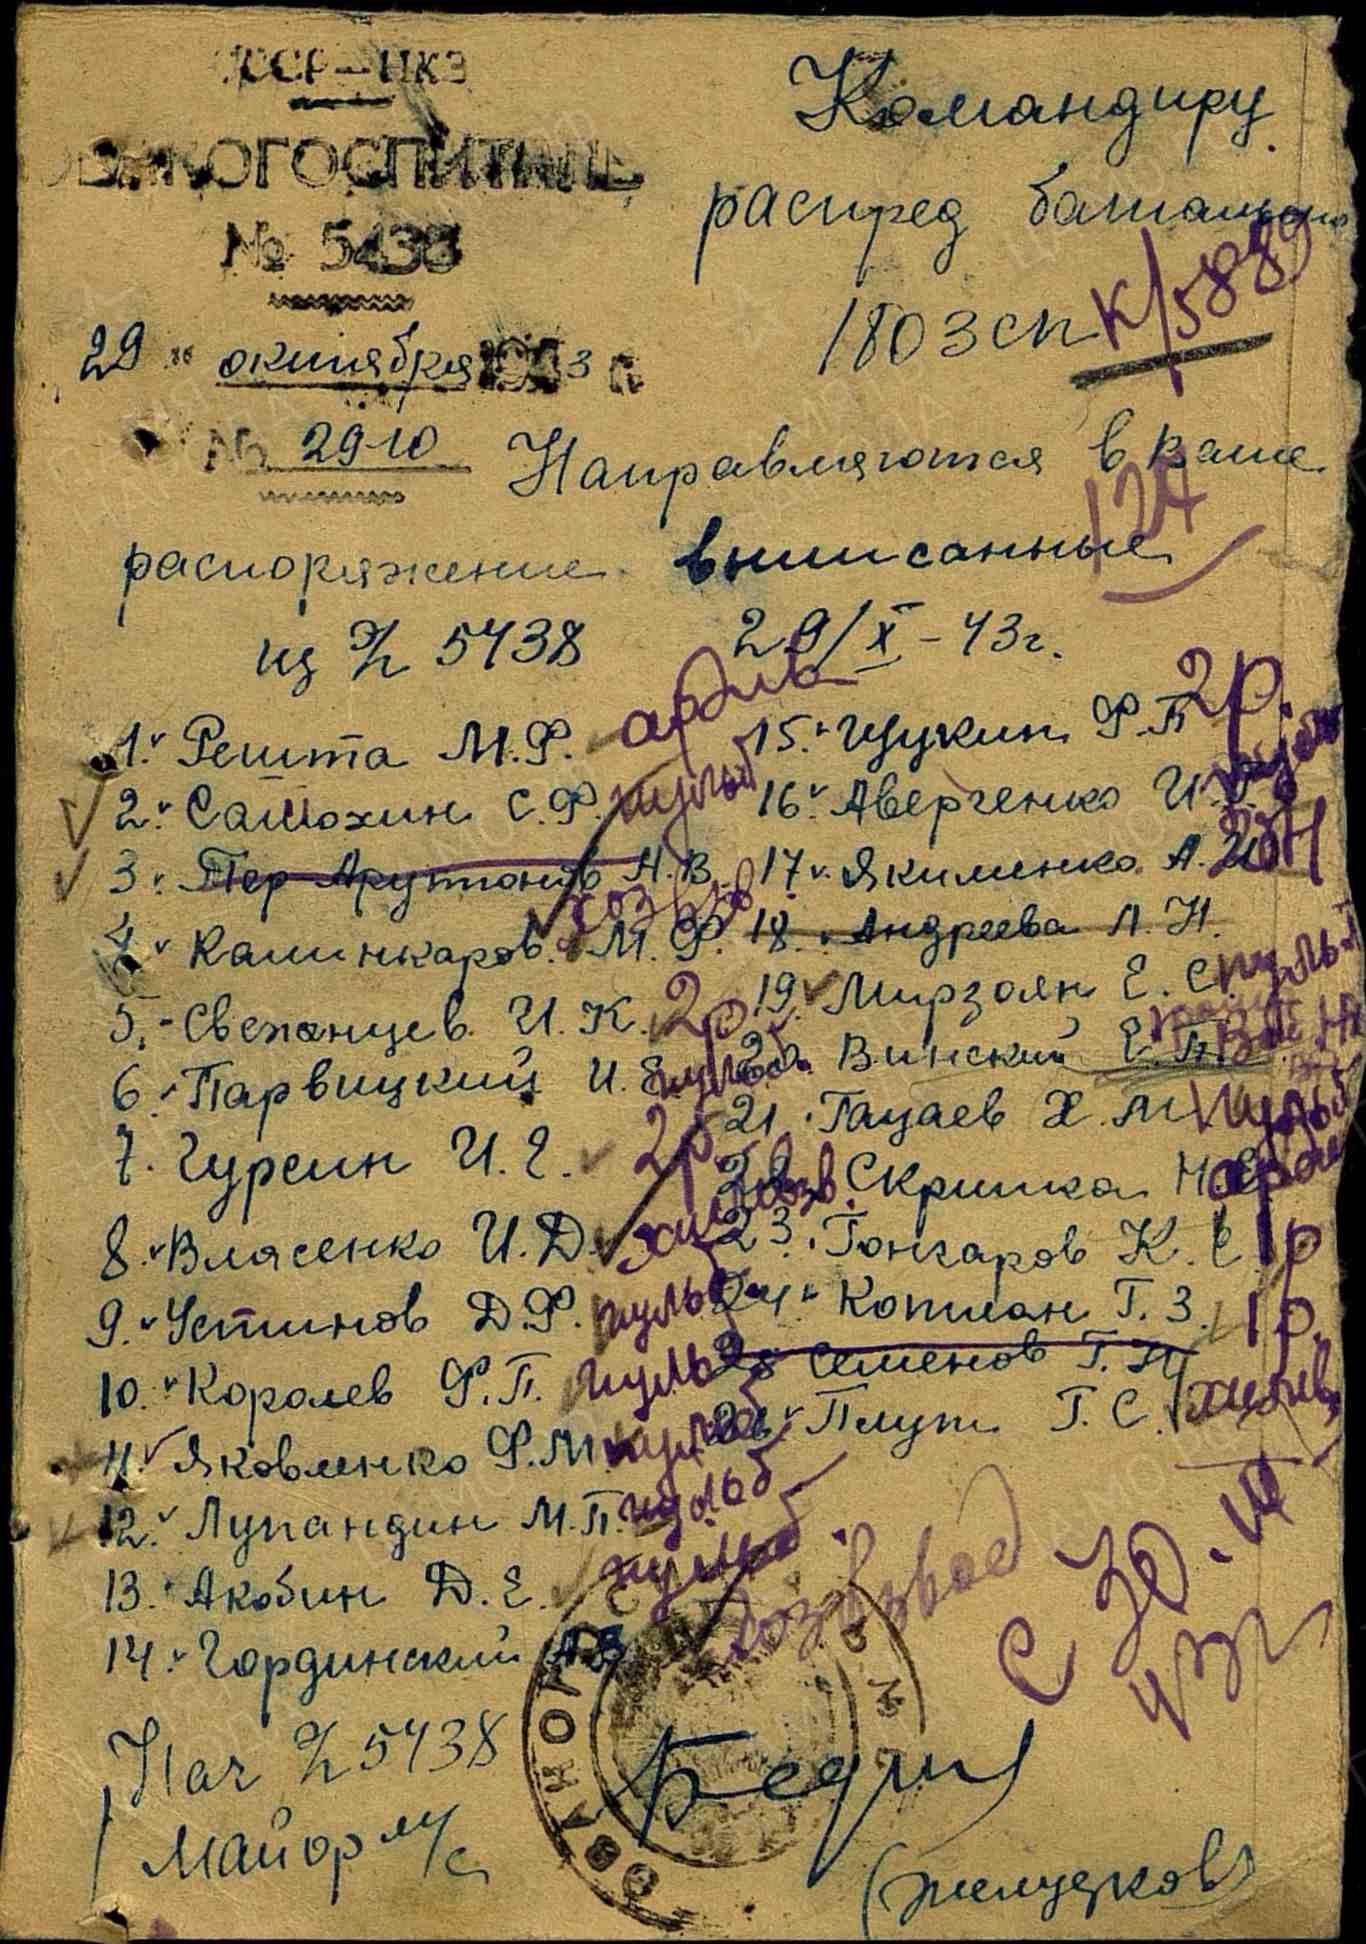 СССР — НКЗ
ЭВАКОГОСПИТАЛЬ
№ 5438
29 " октября 1943 г.
№ 2910
Командиру
распред батальона
180 зсп
К/5889
124
Направляются в Ваше
распоряжение выписанные
из ЭГ 5438 29/X-43г.
1. Решта М.Ф. ардив
2. Самохин С.Ф. пульб
3. Тер Арутюнов Н.В. хозвзв
4. Калинкаров М.Ф.
5. Свежанцев И.К. 2р
6. Парвицкий И.Е. пульб
7. Гурсин И.Е. 2р.
8. Власенко И.Д.
9. Устинов Д.Ф. пульб
10. Королев Ф.П. пульб
11. Яковленко Ф.М. пульб
12. Лупандин М.П. пульб
13. Акобин Д.Е. пульб
14. Гординский А.В. хозвзвод
15. Щукин Ф.П. 2р.
16. Аверченко И.
17. Якименко А.И.
18. Андреева А.Н.
19. Мирзоян Е.С. пульб
20. Винский Е.П.
21. Гацаев Х.М. пульб
22. Скрипка Н.Е.
23. Гончаров К.Е. 1р
24. Копман Г.З. 1р.
25 Семенов Г.Н.
26. Плут Г.С.
с 30.
Нач ЭГ 5438
Майор м/с
(Желудков)